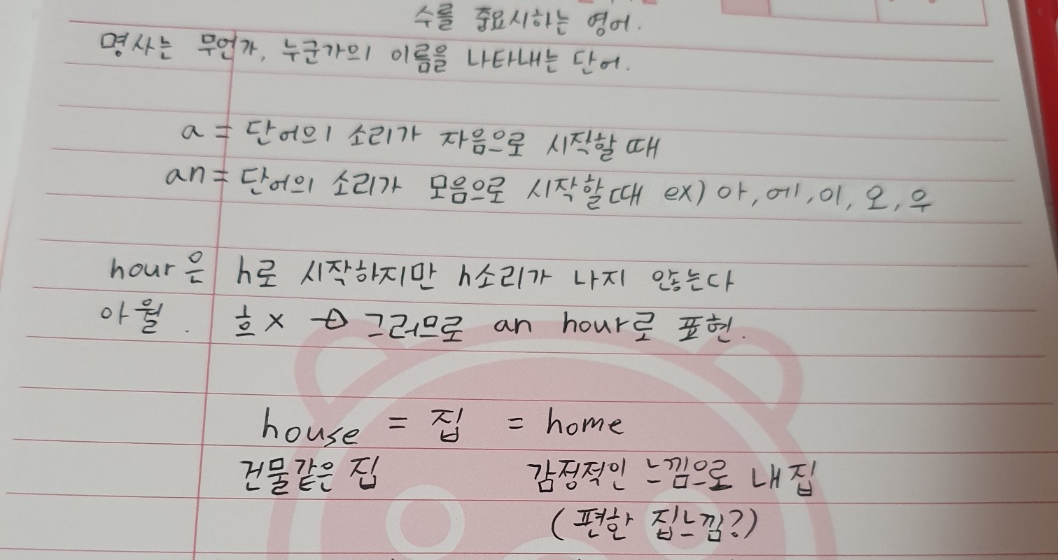 수를 중요시하는 영어.
명사는 무언가, 누군가의 이름을 나타내는 단어.
a = 단어의 소리가 자음으로 시작할 때
an = 단어의 소리가 모음으로 시작할 때 ex) 아, 에, 이, 오, 우
hour은 h로 시작하지만 h소리가 나지 않는다
아월. 흐 x → 그러므로 an hour로 표현.
house = 집 = home
건물같은 집 감정적인 느낌으로 내집
(편한 집느낌?)